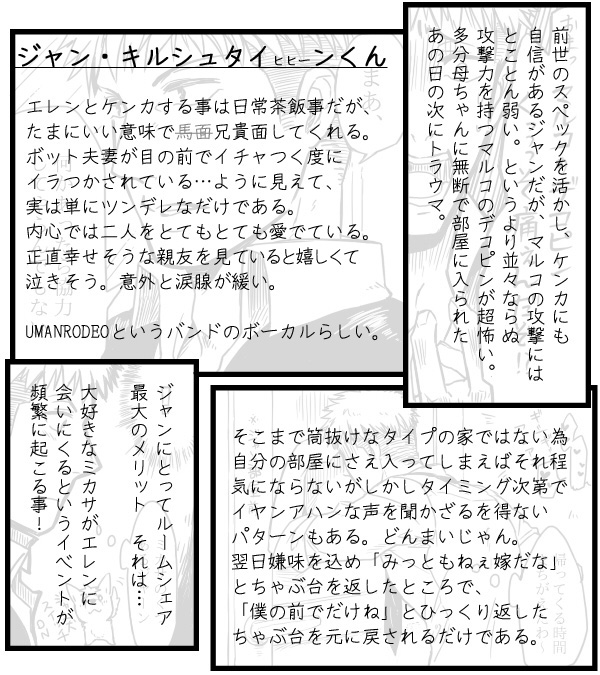 ジャン・キルシュタイヒヒーンくん
エレンとケンカする事は日常茶飯事だが、
たまにいい意味で馬面兄貴面してくれる。
ボット夫妻が目の前でイチャつく度に
イラつかされている…ように見えて、
実は単にツンデレなだけである。
内心では二人をとてもとても愛でている。
正直幸せそうな親友を見ていると嬉しくて
泣きそう。意外と涙腺が緩い。
UMANRODEOというバンドのボーカルらしい。
前世のスペックを活かし、ケンカにも
自信があるジャンだが、マルコの攻撃には
とことん弱い。というより並々ならぬ
攻撃力を持つマルコのデコピンが超怖い。
多分母ちゃんに無断で部屋に入られた
あの日の次にトラウマ。
ジャンにとってルームシェア
最大のメリット それは…
大好きなミカサがエレンに
会いにくるというイベントが
頻繁に起こる事！
そこまで筒抜けなタイプの家ではない為
自分の部屋にさえ入ってしまえばそれ程
気にならないがしかしタイミング次第で
イヤンアハンな声を聞かざるを得ない
パターンもある。どんまいじゃん。
翌日嫌味を込め「みっともねぇ嫁だな」
とちゃぶ台を返したところで、
「僕の前でだけね」とひっくり返した
ちゃぶ台を元に戻されるだけである。